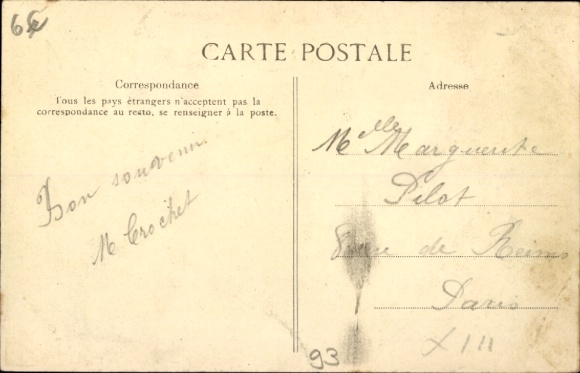 6€
CARTE POSTALE
Correspondance
Tous les pays étrangers n'acceptent pas la
correspondance au recto, se renseigner à la poste.
Bon souvenir
M Crochet
Adresse
Melle Marguerite
Pilot
rue de Reims
Paris
XIII
93